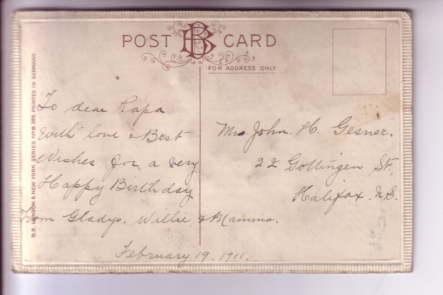 POST CARD
FOR ADDRESS ONLY
To dear Papa
With love & Best
Wishes for a very
Happy Birthday
From Gladys. Willie & Mamma.
February 19. 1911.
John H. Gesner.
22 Gottingen St.
Halifax. N.S.
LONDON & NEW YORK SERIES PRINTED IN GERMANY